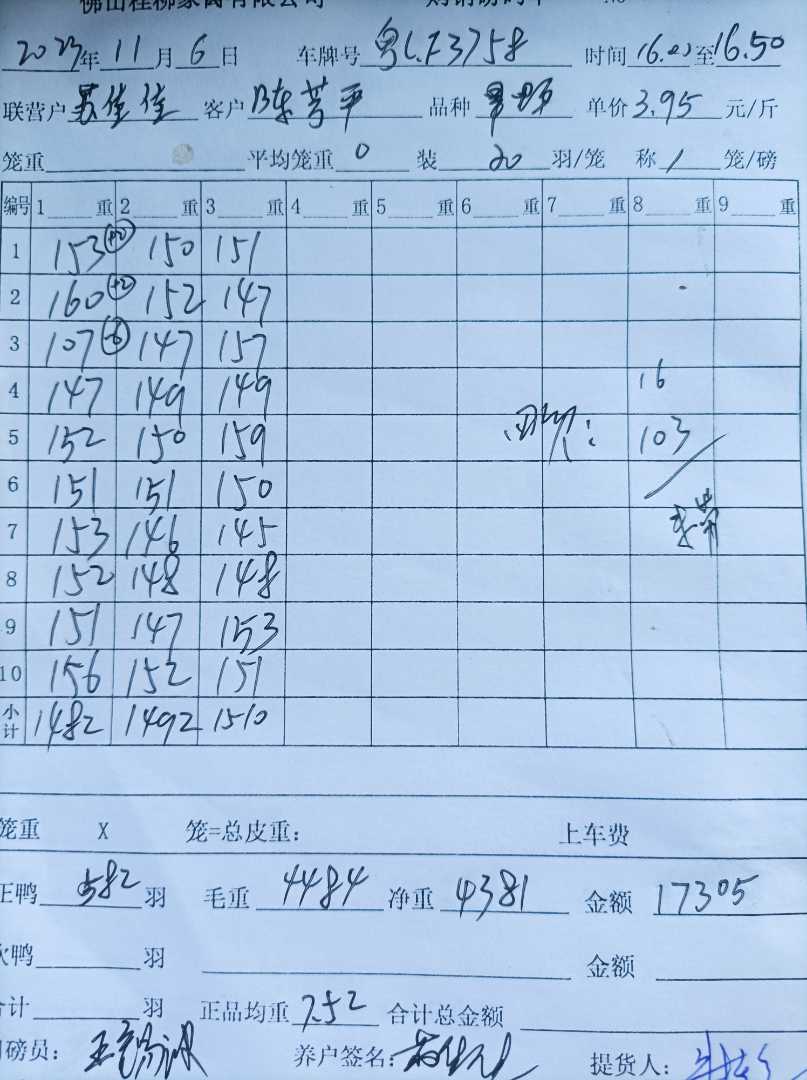 佛山桂柳家禽有限公司
2023年11月6日 车牌号 粤L.F3758 时间 16.05至16.50
联营户 苏佳佳 客户 陈芳平 品种 单价 3.95 元/斤
笼重 平均笼重 0 装 20 羽/笼 称 1 笼/磅
编号 1 重 2 重 3 重 4 重 5 重 6 重 7 重 8 重 9 重
1 153 (+2) 150 151
2 160 (+2) 152 147
3 107 (-6) 147 157
4 147 149 149 16
5 152 150 159 103
6 151 151 150
7 153 146 145
8 152 148 148
9 151 147 153
10 156 152 151
小计 1482 1492 1510
笼重 X 笼=总皮重: 上车费
正鸭 582 羽 毛重 4484 净重 4381 金额 17305
次鸭 羽 金额
合计 羽 正品均重 7.52 合计总金额
司磅员: 养户签名: 提货人: